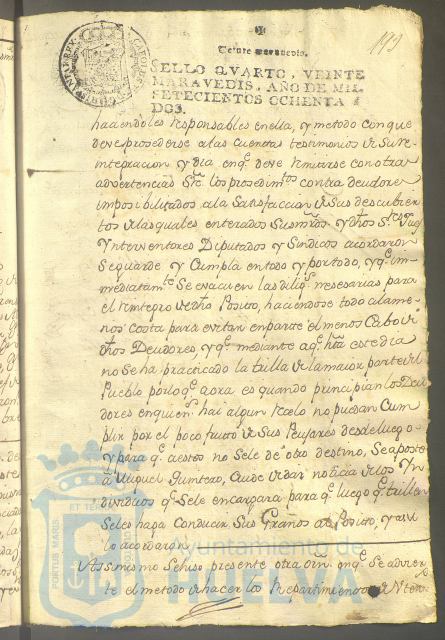 199
Veinte maravedis.
SELLO QVARTO, VEINTE
MARAVEDIS, AÑO DE MIL
SETECIENTOS OCHENTA Y
DOS.
haciendoles responsables en ella, y metodo con que
deve procederse a las cuentas testimonios de su re-
integracion y dia en q.e deve remitirse con otras
advertencias Sre los prosedim.tos contra deudores
imposibilitados a la Satisfaccion de sus descubier
tos de las quales enterados Sus mrds y dhos S.res
Ynterventores Diputados y Sindicos acordaron
Se guarde y Cumpla en todo y por todo, y q.e im-
mediatam.te Se evacuen las dilig.s nesesarias para
el reintegro de dho Posito, haciendose todo a la me-
nos costa para evitar en parte el menos Cabo de
dhos Deudores, y q.e mediante a q.e hta este dia
no Se ha practicado la trilla de la maior parte del
Pueblo por lo q.e aora es quando principian los Deu
dores en quien.s hai algun recelo no puedan Cum
plir por el poco fruto de Sus Peujares desde luego
y para q.e a estos no Se le de otro destino, Se aposte
a Miguel Quintero, Cuide de dar noticia de los Yn
dividuos q.e Se le encargara para q.e luego q.e trillen
Se les haga Conducir Sus Granos al Posito, y asi
lo acordaron
Assimismo Se hiso presente otra orn. en q.e Se advier
te el metodo de hacer los Repartimientos de
PORTUS MARIS ET TERRAE
Ayuntamiento de
HUELVA